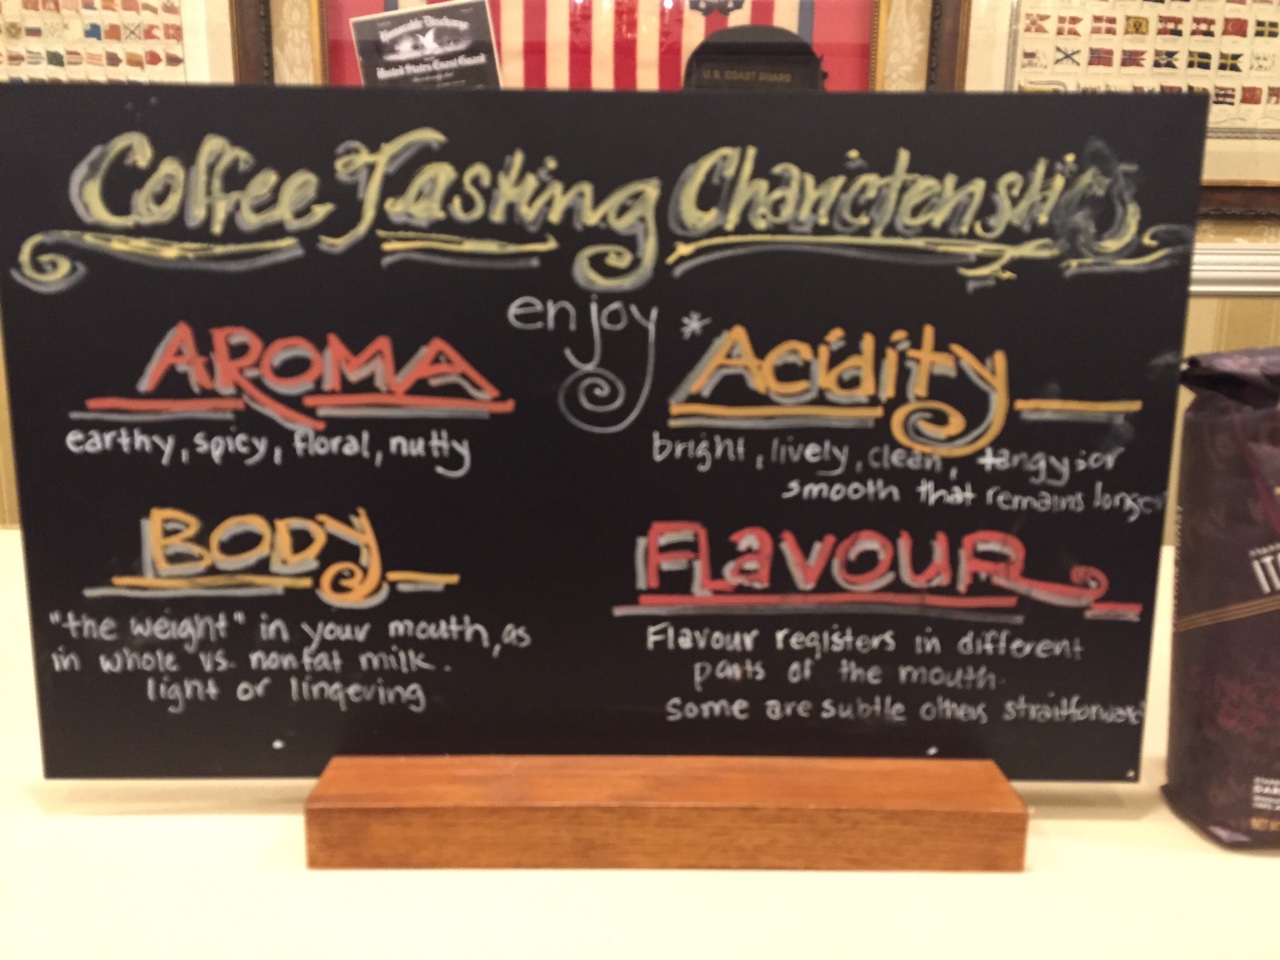 Honorable Discharge
United States Coast Guard
U.S. COAST GUARD
Coffee Tasting Charictenstics
enjoy
AROMA
earthy, spicy, floral, nutty
* Acidity
bright, lively, clean, tangy; or
smooth that remains longer
BODY
"the weight" in your mouth, as
in whole vs. nonfat milk.
light or lingering
FLAVOUR
Flavour registers in different
parts of the mouth.
Some are subtle others straitforward